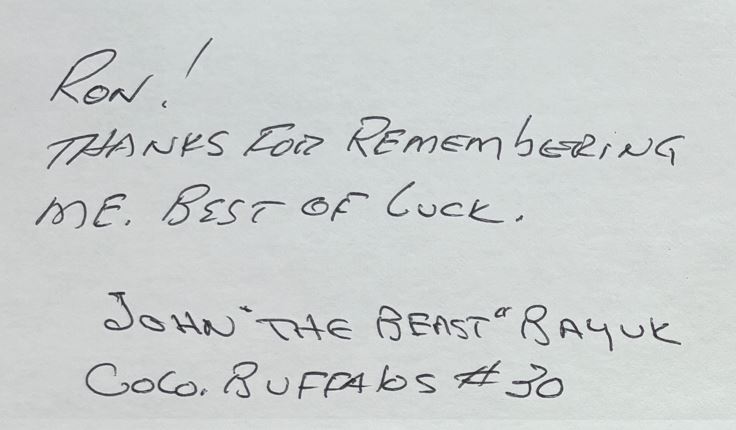 RON!
THANKS FOR REMEMBERING
ME. BEST OF LUCK.
JOHN "THE BEAST" BAYUK
COLO. BUFFALOS #30